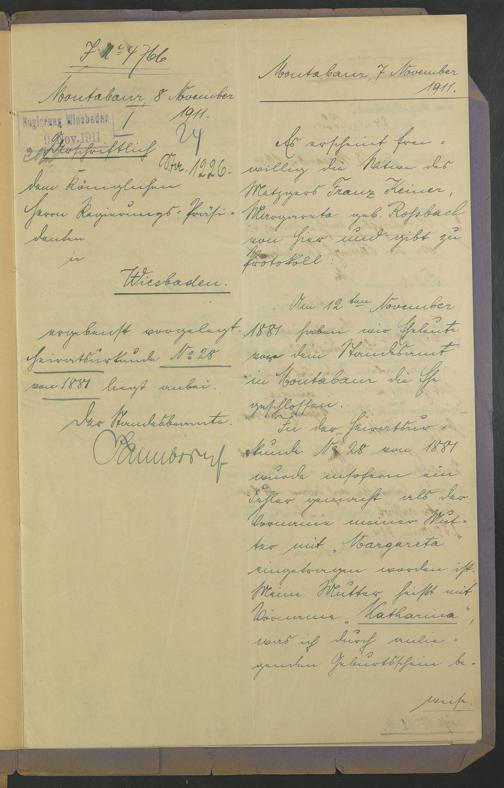 J. No 4766
Montabaur, 8 November
1911.
Regierung Wiesbaden
9. Nov. 1911
Urschriftlich
Nr. 1226.
dem Königlichen
Herrn Regierungs-Präsi-
denten
in
Wiesbaden.
ergebenst vorgelegt.
Heiratsurkunde No 28
von 1881 liegt anbei.
Der Standesbeamte.
Montabaur, 7 November
1911.
Es erscheint frei-
willig die Witwe des
Metzgers Franz
Margareta geb. Rossbach
von hier und gibt zu
Protokoll:
Am 12ten November
1881 haben wir Eheleute
vor dem Standesamt
in Montabaur die Ehe
geschlossen.
In der Heiratsur-
kunde No 28 von 1881
wurde insofern ein
Fehler gemacht als der
Vorname meiner Mut-
ter mit „Margareta
eingetragen worden ist.
Meine Mutter heißt mit
Vorname „Katharina",
was ich durch anlie-
genden Geburtsschein be-
weise.